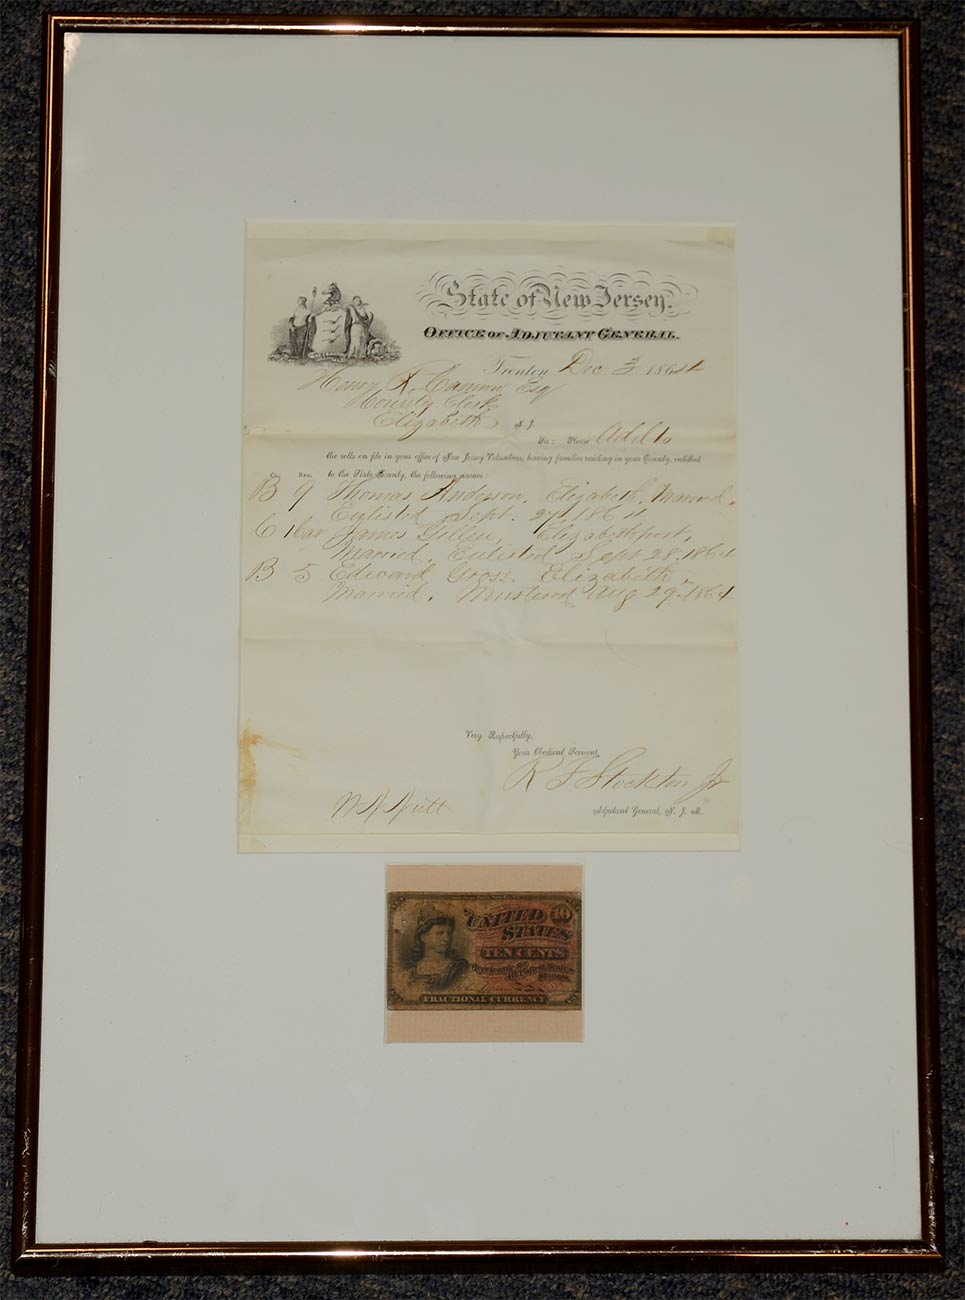 State of New Jersey.
OFFICE OF ADJUTANT GENERAL.
Trenton Dec 3 1864
Henry R. Cannon Esq
County Clerk
Elizabeth N. J.
Sir: Please Add to
the rolls on file in your office of New Jersey Volunteers, having families residing in your County, entitled
Co. Reg. to the State County, the following names:
B 9 Thomas Anderson, Elizabeth, Married,
Enlisted Sept. 27, 1864
James Gillen, Elizabethport,
Married, Enlisted Sept 28, 1864
B 5 Edward Gross. Elizabeth
Married. Mustered Aug 29. 1864
Very Respectfully,
Your Obedient Servant,
R F Stockton Jr
Adjutant General, N. J. M.
UNITED 10
STATES
TEN CENTS
Receivable for
all United States
FRACTIONAL CURRENCY